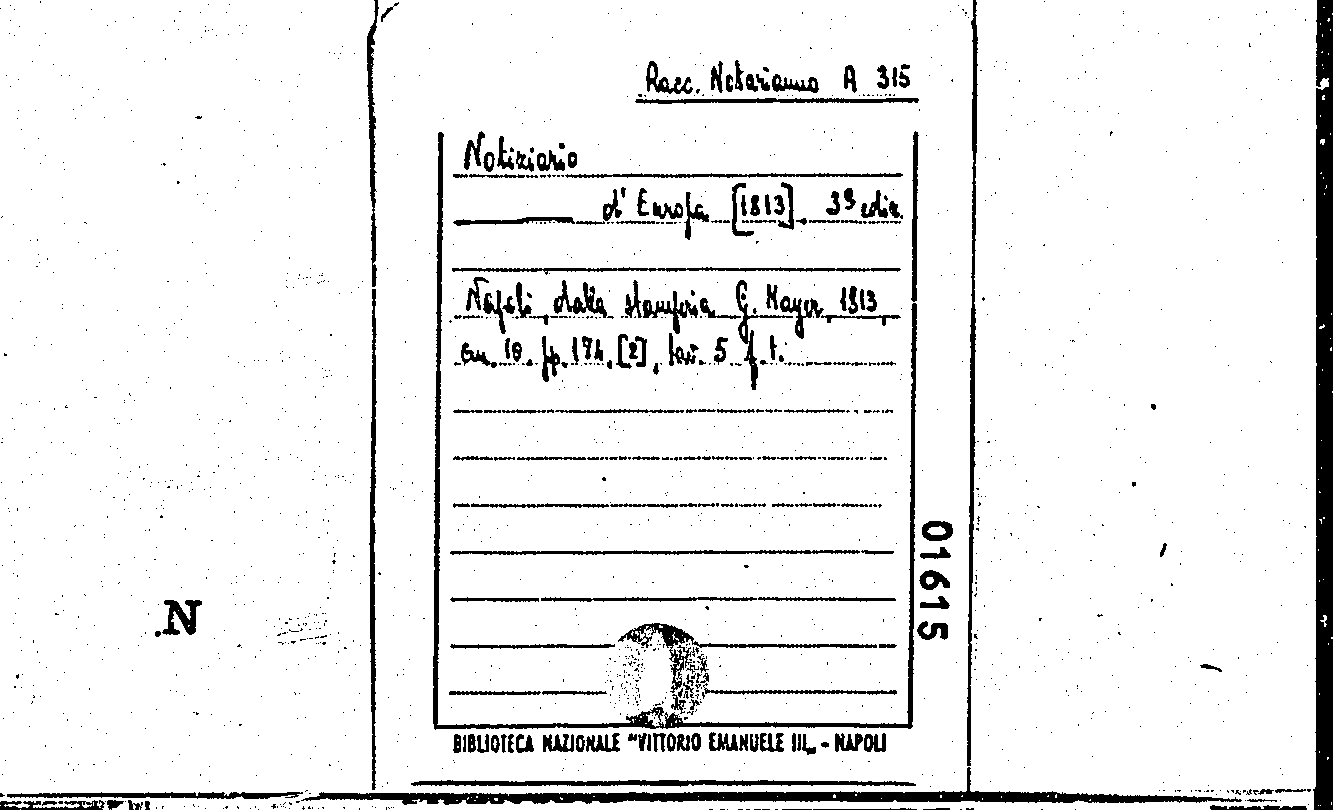 Racc. Notarianno A 315
Notiziario
d' Europa [1813]. 3ª ediz.
Napoli, dalla stamperia G. Mayer, 1813,
cm. 18. pp. 174, [2], tav. 5 f. t.
01615
N.
BIBLIOTECA NAZIONALE "VITTORIO EMANUELE III„ - NAPOLI